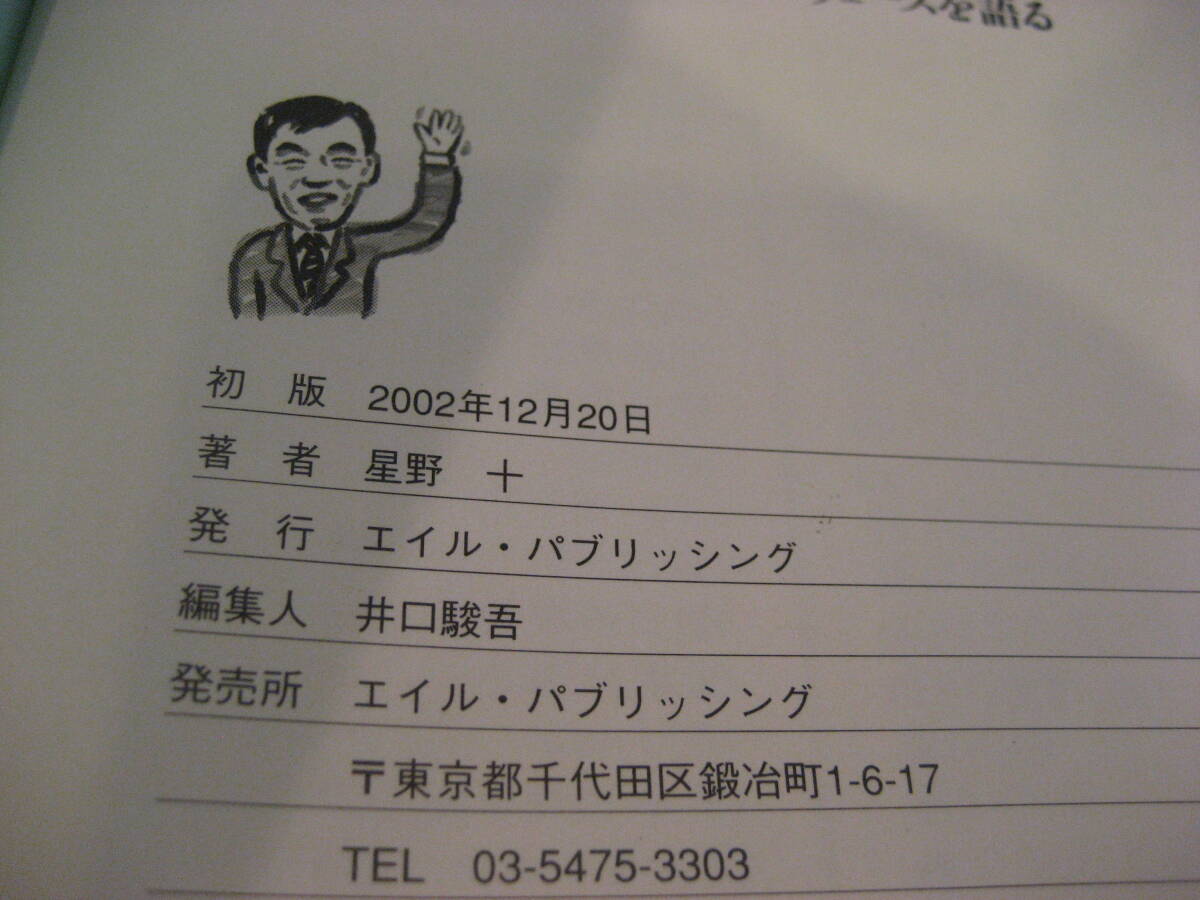 を語る
初版 2002年12月20日
著者 星野 十
発行 エイル・パブリッシング
編集人 井口駿吾
発売所 エイル・パブリッシング
〒東京都千代田区鍛冶町1-6-17
TEL 03-5475-3303